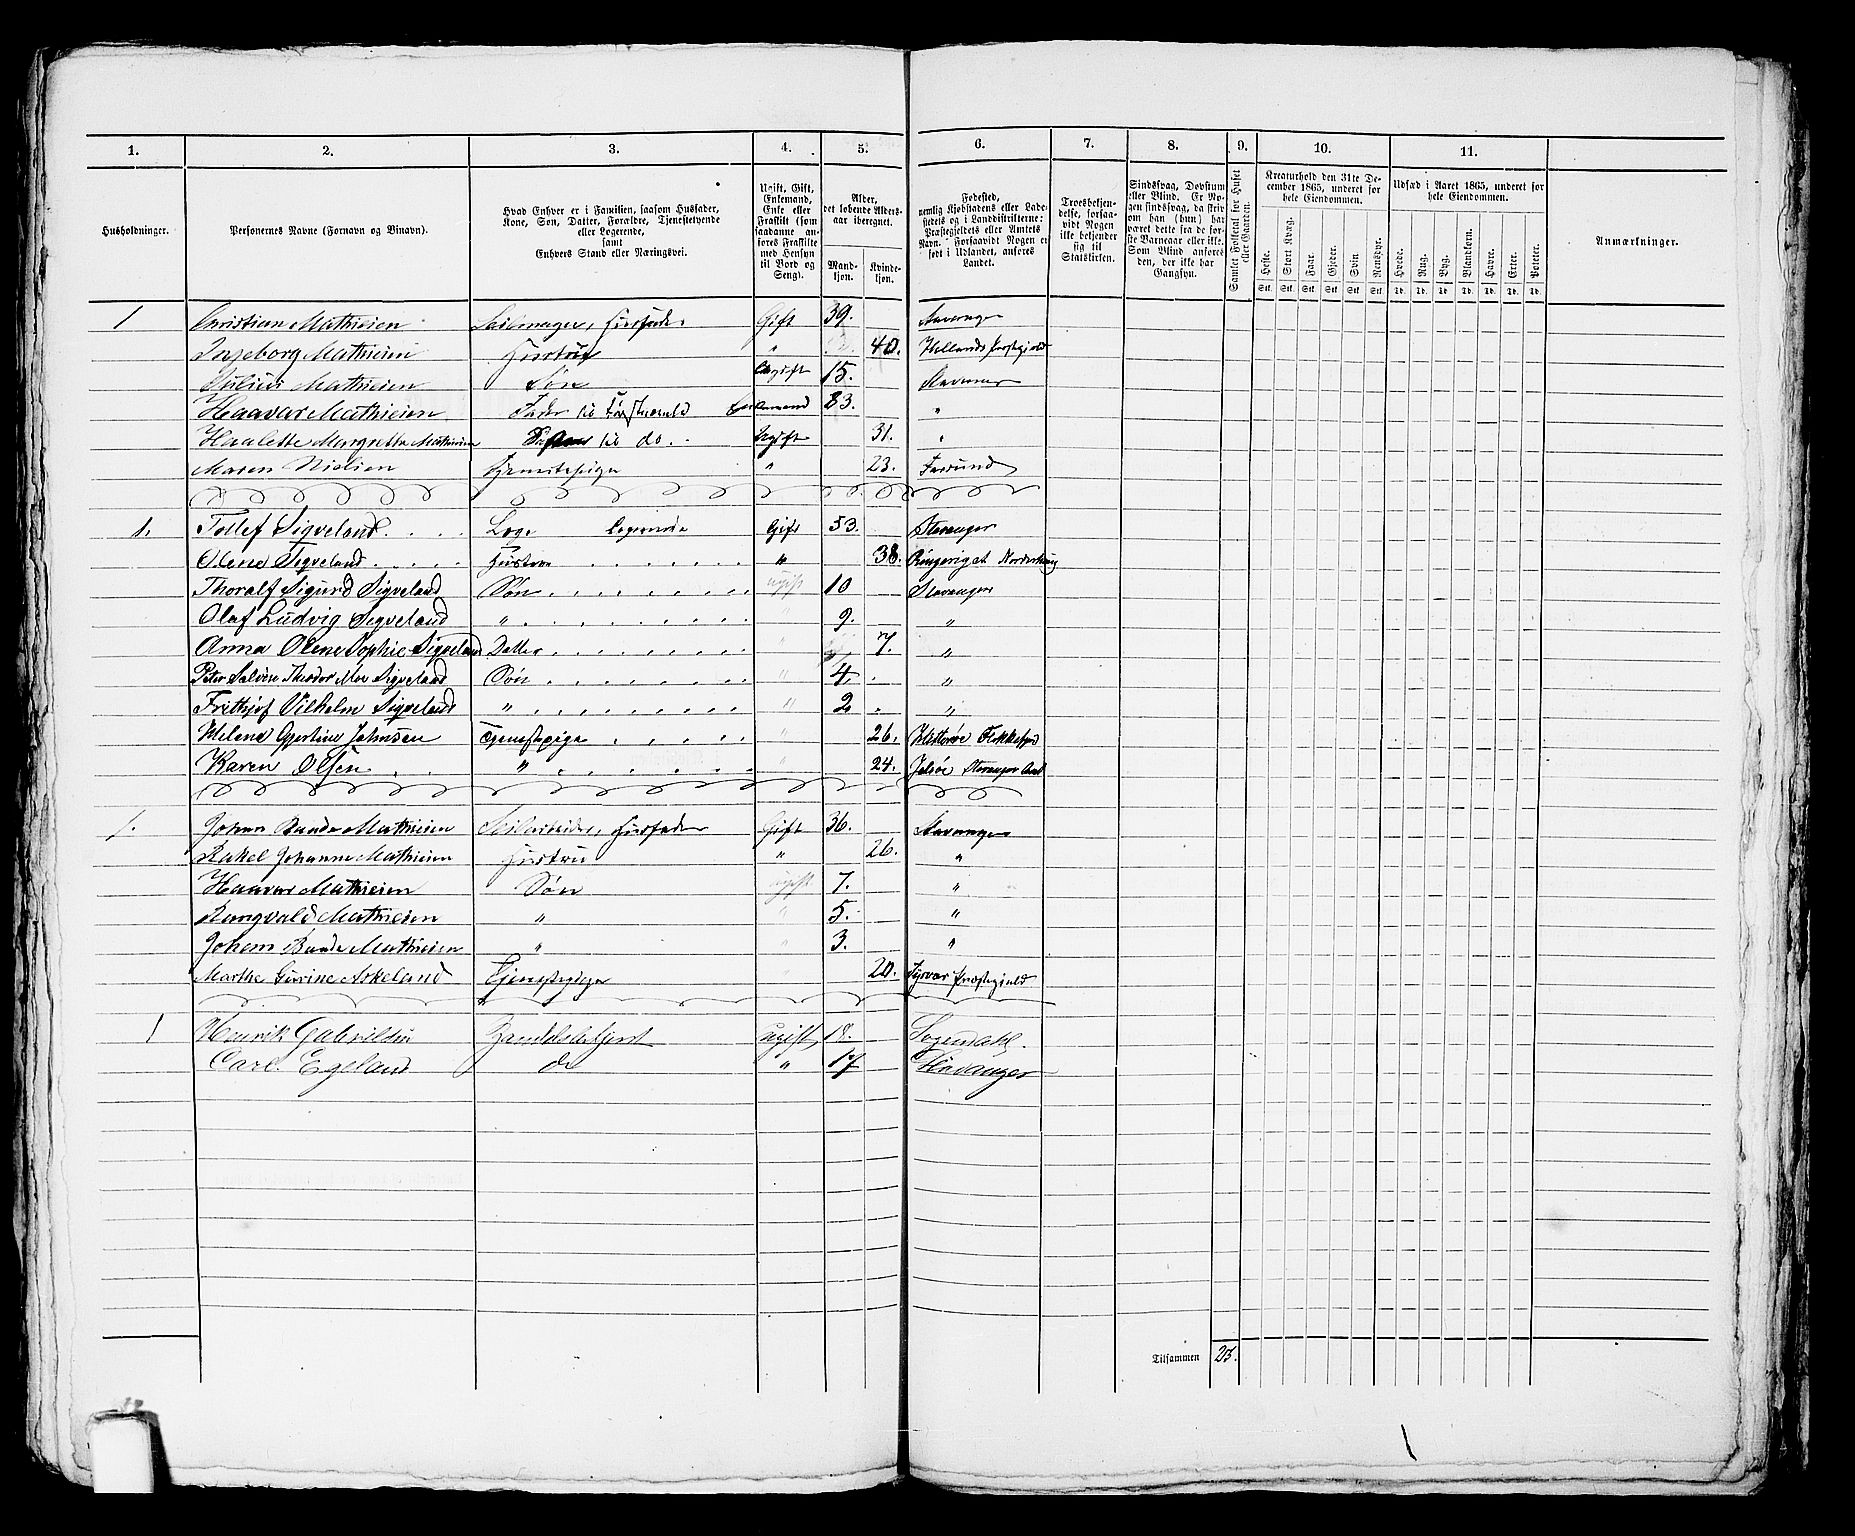 1. 2. 3. 4. 5. 6. 7. 8. 9. 10. 11.
Husholdninger.
Personernes Navne (Fornavn og Binavn).
Hvad Enhver er i Familien, saasom Husfader, Kone, Søn, Datter, Forældre, Tjenestetyende eller Logerende, samt Enhvers Stand eller Næringsvei.
Ugift, Gift, Enkemand, Enke eller Fraskilt (som saadanne anføres Fraskilte med Hensyn til Bord og Seng).
Alder, det løbende Aldersaar iberegnet.
Mandkjøn. Kvindekjøn.
Fødested, nemlig Kjøbstadens eller Ladestedets og i Landdistrikterne: Præstegjeldets eller Amtets Navn. Forsaavidt Nogen er født i Udlandet, anføres Landet.
Troesbekjendelse, forsaavidt Nogen ikke bekjender sig til Statskirken.
Sindssvag, Døvstum eller Blind. Er Nogen sindssvag, da skriv om han (hun) har været dette fra de første Barneaar eller ikke. Som Blind anføres den, der ikke har Gangsyn.
Samlet Folketal for Huset eller Gaarden.
Kreaturhold den 31te December 1865, underet for hele Eiendommen.
Heste. Stort Kvæg. Faar. Gjeder. Svin. Rensdyr.
Stk. Stk. Stk. Stk. Stk. Stk.
Udsæd i Aaret 1865, underet for hele Eiendommen.
Hvede. Rug. Byg. Blandkorn. Havre. Erter. Poteter.
Td. Td. Td. Td. Td. Td. Td.
Anmærkninger.
1 Christian Mathiesen Seilmager, Husfader Gift 39. Stavanger
Ingeborg Mathiesen Hustru " 40. Hellands Præstegield
Julius Mathiesen Søn Ugift 15. Stavanger
Haavar Mathiesen Fader til Enkemand 83. "
Haalette Margrethe Mathiesen til do. Ugift 31. "
Maren Nielsen Tjenestepige " 23. Farsund
1. Tollef Sigveland. Læge Logerende Gift 53. Stavanger
Olene Sigveland Hustru " 38. Ringeriget Norderhoug
Thoralf Sigurd Sigveland Søn ugift 10 Stavanger
Olaf Ludvig Sigveland " " 9. "
Anna Olene Sophie Sigveland Datter " 7. "
Peter Salvese Theodor Moe Sigveland Søn " 4. "
Frithjof Vilhelm Sigveland " " 2 "
Helene Gjertine Johnsen Tjenestepige " 26. Flekkefjord
Karen Olsen " " 24. Jelsøe Stavanger Amt
1. Johan Bande Mathiesen Seilarbeider, Husfader Gift 36. Stavanger
Rakel Johanne Mathiesen Hustru " 26. "
Haavar Mathiesen Søn ugift 7. "
Rangvald Mathiesen " " 5. "
Johan Bande Mathiesen " " 3. "
Marthe Gurine Askeland Tjenestepige " 20. Tysvær Præstegjeld
1 Henrik Gabrielsen Handelsbetjent ugift 18. Sogendahl.
Carl Egeland do " 17 Stavanger
Tilsammen 23.